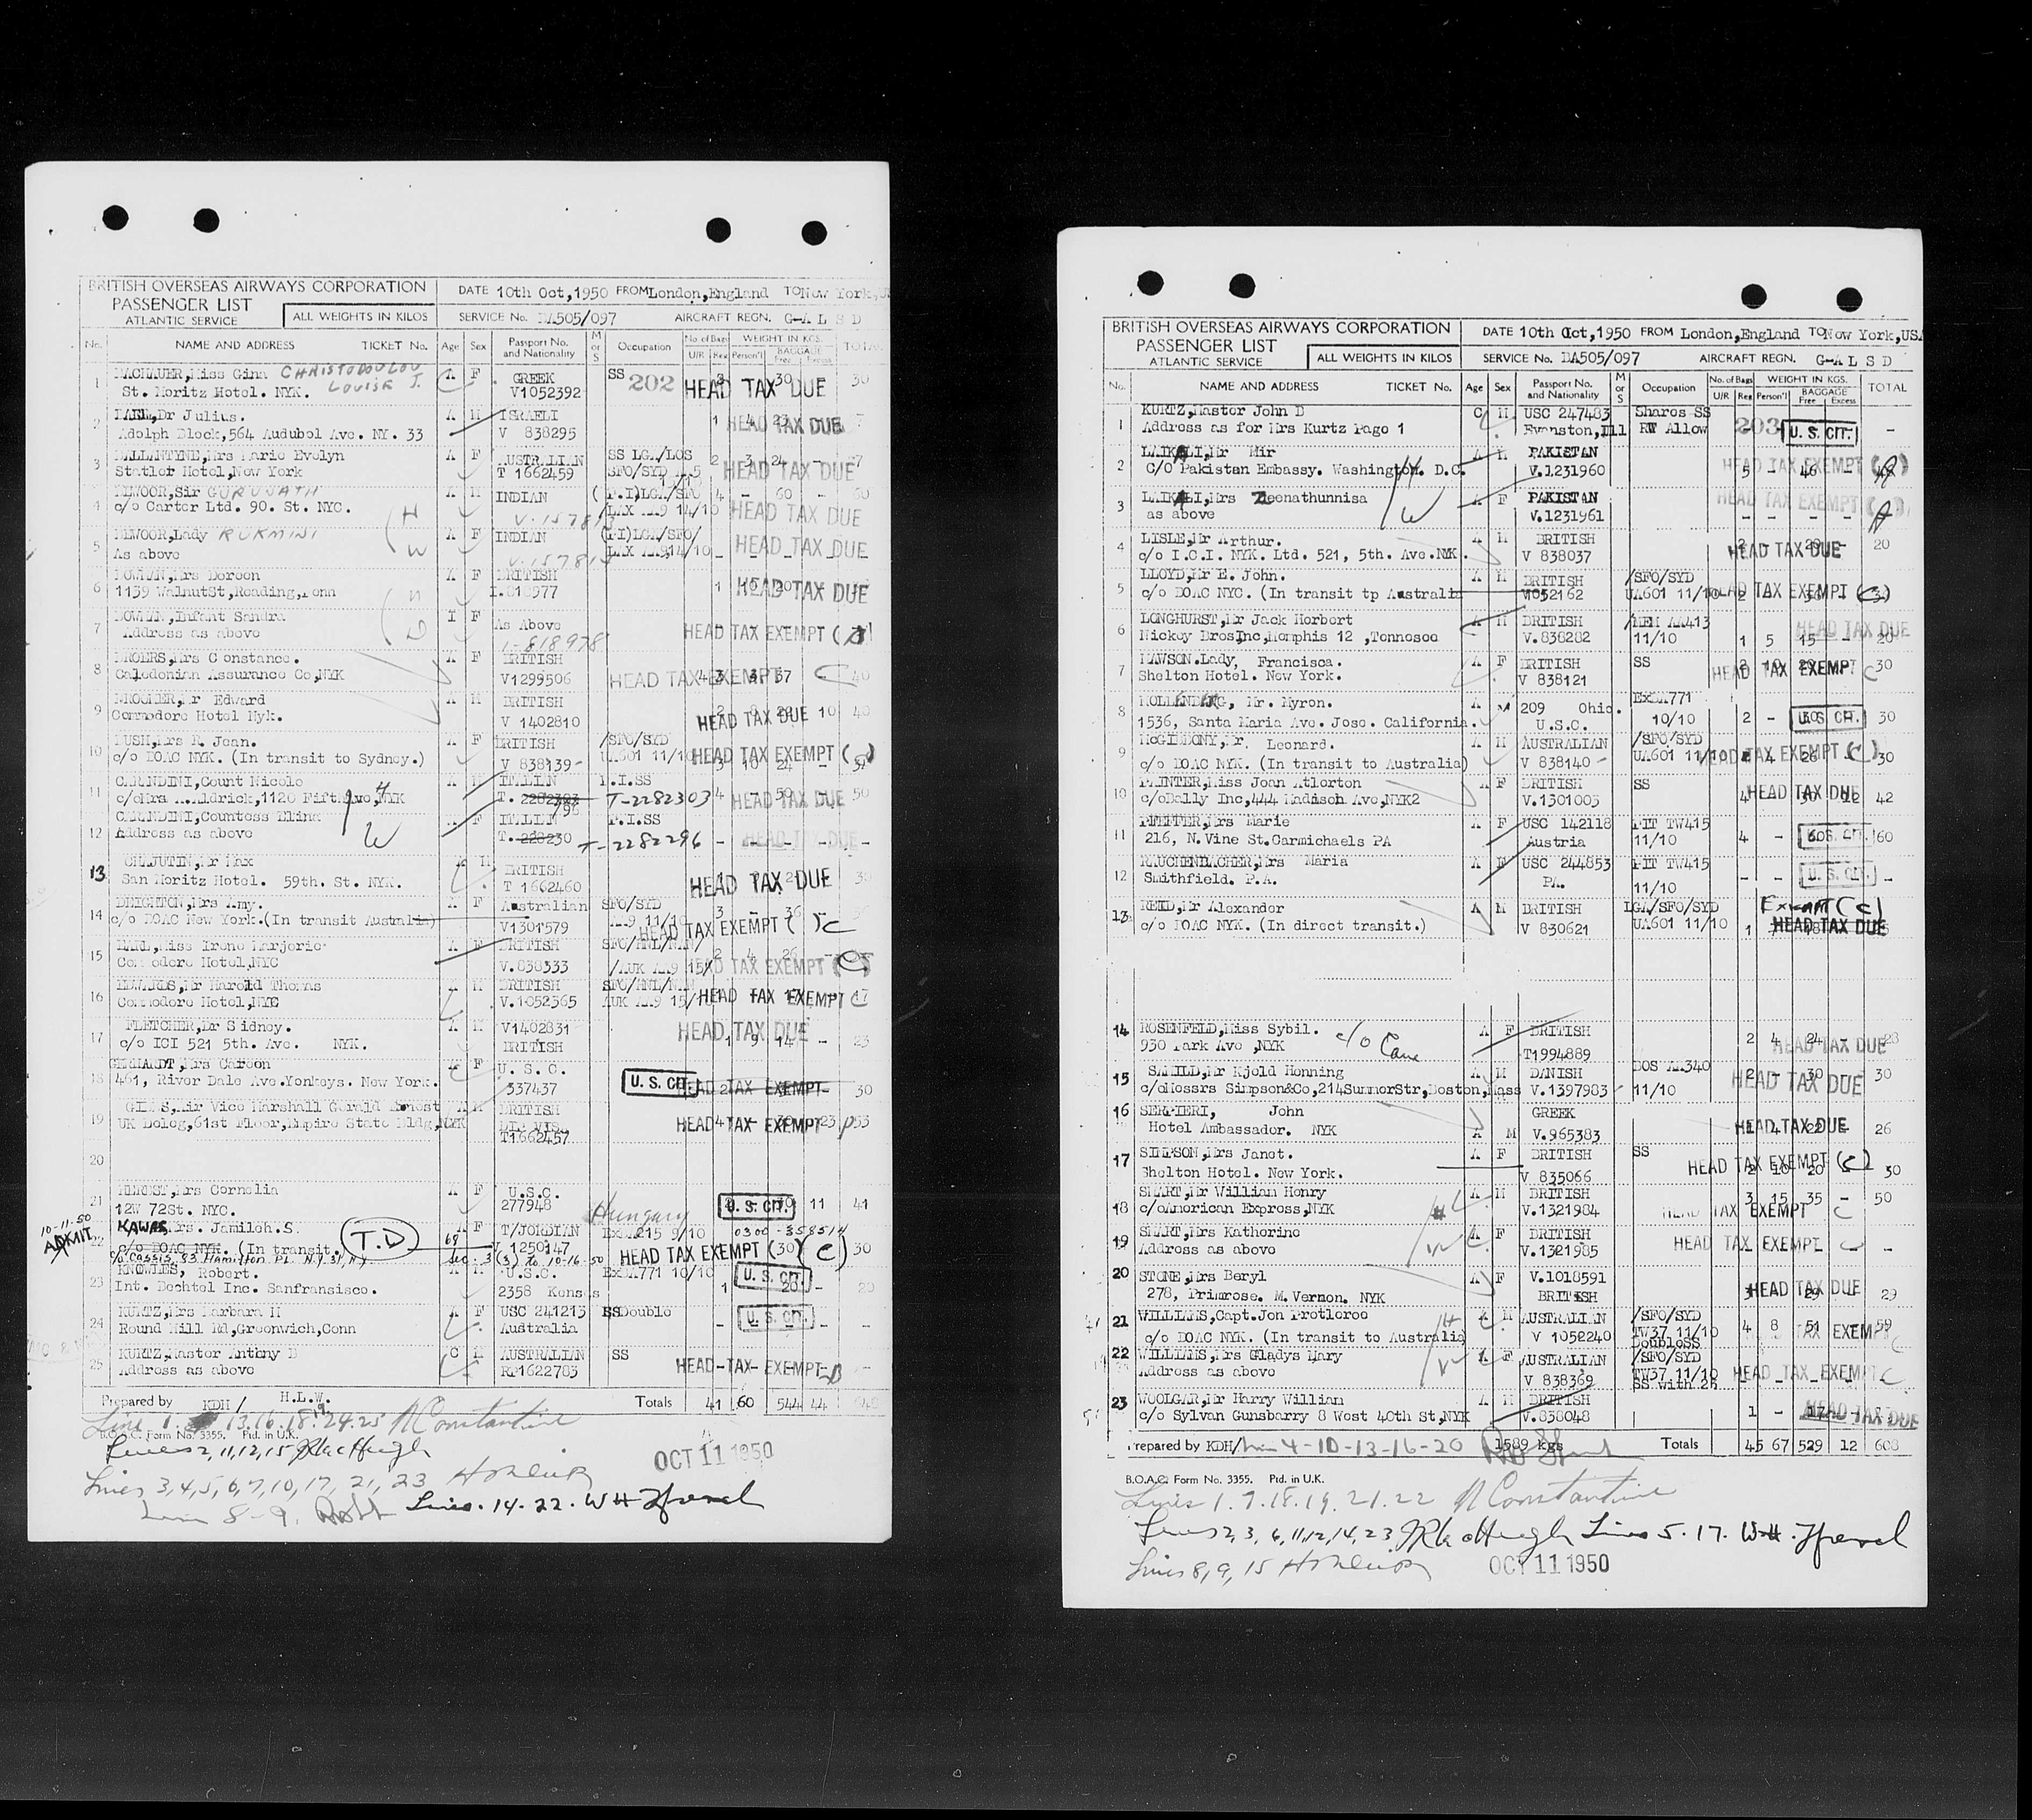 BRITISH OVERSEAS AIRWAYS CORPORATION
PASSENGER LIST
ATLANTIC SERVICE
ALL WEIGHTS IN KILOS
DATE 10th Oct,1950 FROM London,England TO New York,
SERVICE No. 505/097 AIRCRAFT REGN. G-A L S D
No. NAME AND ADDRESS TICKET No. Age Sex Passport No. and Nationality M or S Occupation No of Bags U/R Reg WEIGHT IN KGS. Person'l BAGGAGE Free Excess TOTAL
1 Miss Gina CHRISTODOULOU LOUISE J. A F GREEK SS 202 HEAD TAX DUE 30
St. Moritz Hotel. NYK. V1052392
2 Dr Julius. A M ISRAELI 1 4 HEAD TAX DUE
Adolph Block,564 Audubol Ave. NY. 33 V 838295
3 BALLANTYNE,Mrs Marie Evelyn A F AUSTRALIAN SS LGA/LOS 2 3 24 HEAD TAX DUE
Statler Hotel,New York T 1662459 SFO/SYD
4 BEWOOR,Sir GURUNATH A M INDIAN (P.I)LGA/SFO 4 - 60 - 60
c/o Carter Ltd. 90. St. NYC. /LAX AA9 14/10 HEAD TAX DUE
5 BEWOOR,Lady RUKMINI A F INDIAN (PI)LGA/SFO/
As above LAX AA914/10 HEAD TAX DUE
6 BOWMAN,Mrs Doreen A F BRITISH 1 HEAD TAX DUE
1139 WalnutSt,Reading,Penn
7 BOWMAN,Infant Sandra I F As Above
Address as above HEAD TAX EXEMPT
8 BROERS,Mrs Constance. A F BRITISH HEAD TAX EXEMPT C 40
Caledonian Assurance Co,NYK V1299506
9 Mr Edward A M BRITISH HEAD TAX DUE 10 40
Commodore Hotel Nyk. V 1402810
10 BUSH,Mrs R. Jean. A F BRITISH /SFO/SYD
c/o BOAC NYK. (In transit to Sydney.) V 838139- UA601 11/10 HEAD TAX EXEMPT
11 CARANDINI,Count Nicolo A M ITALIAN P.I.SS 4 - 50 50
c/oMrs A.Aldrick,1120 Fift.Ave,NYK T. 2282303 T-2282303 HEAD TAX DUE
12 CARANDINI,Countess Elina A F ITALIAN P.I.SS
Address as above T. 228230 T-2282296 HEAD TAX DUE
13 CHAJUTIN,Mr Max BRITISH
San Moritz Hotel. 59th. St. NYK. T 1662460 HEAD TAX DUE
14 DEIGHTON,Mrs Amy. A F Australian SFO/SYD 3 36
c/o BOAC New York.(In transit Australia) V1301579 11/10 HEAD TAX EXEMPT ( ) C
15 EARL,Miss Irene Marjorie A F BRITISH SFO/HNL/NAN/ 2 4 26
Commodore Hotel,NYC V.838333 /AUK AA9 HEAD TAX EXEMPT
16 EDWARDS,Mr Harold Thomas A M BRITISH SFO/HNL/NAN
Commodore Hotel,NYC V.1052365 AUK AA9 15/10 HEAD TAX EXEMPT C 17
17 FLETCHER,Dr Sidney. A M V1402831 HEAD TAX DUE
c/o ICI 521 5th. Ave. NYK. BRITISH 1 9 14 - 23
18 GERHARDT,Mrs Careen F U. S. C. U. S. CIT. HEAD TAX EXEMPT
461, River Dale Ave.Yonkeys. New York. 337437 30
19 Air Vice Marshall Gerald Ernest A M BRITISH
UK Deleg,61st Floor,Empire State Bldg,NYK T1662457 HEAD TAX EXEMPT 53
20
21 Mrs Cornelia A F U.S.C. Hungary U. S. CIT. 11 41
12W 72St. NYC. 277948
10-11-50 ADMIT
22 KAWAS,Mrs. Jamileh.S. A F T/JORDIAN 9/10 0300-358514
c/o BOAC NYK. (In transit. T.D V 1250147 HEAD TAX EXEMPT (30) C 30
sec. 3 (3) to 10-16-50
23 KNOWLES, Robert. A M U.S.C. 10/10 U. S. CIT.
Int. Bechtel Inc. Sanfransisco. 2358 1 20 -
24 KURTZ,Mrs Barbara H A F USC 241213 SSDouble
Round Hill Rd,Greenwich,Conn Australia U. S. CIT.
25 KURTZ,Master Antony B C M AUSTRALIAN SS
Address as above RP1622783 HEAD TAX EXEMPT
Prepared by KDH / H.L.W. Totals 41 60 544 44
Line 1. 13.16.18.9.24.25 N Constantine
B.O.A.C. Form No. 3355. Ptd. in U.K.
Lines 2,11,12,15
Lines 3,4,5,6,7,10,17, 21, 23
OCT 11 1950
8-9. Lines. 14-22. WH
BRITISH OVERSEAS AIRWAYS CORPORATION
PASSENGER LIST
ATLANTIC SERVICE
ALL WEIGHTS IN KILOS
DATE 10th Oct,1950 FROM London,England TO New York,USA
SERVICE No. BA505/097 AIRCRAFT REGN. G-A L S D
No. NAME AND ADDRESS TICKET No. Age Sex Passport No. and Nationality M or S Occupation No. of Bags U/R Reg WEIGHT IN KGS. Person'l BAGGAGE Free Excess TOTAL
1 KURTZ,Master John D C M USC 247483 Shares SS 203 U. S. CIT. -
Address as for Mrs Kurtz Page 1 Evanston,Ill RT Allow
2 LAIKALI,Mr Mir A M PAKISTAN HEAD TAX EXEMPT
C/O Pakistan Embassy. Washington. D.C. V.1231960 5 - 46
3 LAIKALI,Mrs Zeenathunnisa A F PAKISTAN HEAD TAX EXEMPT
as above V.1231961
4 LISLE,Mr Arthur. A M BRITISH HEAD TAX DUE 20
c/o I.C.I. NYK. Ltd. 521, 5th. Ave.NYK. V 838037
5 LLOYD,Mr E. John. A M BRITISH /SFO/SYD
c/o BOAC NYC. (In transit tp Australia V052162 UA601 11/10 HEAD TAX EXEMPT (C)
6 LONGHURST,Mr Jack Herbert A M BRITISH /MEM AA413 HEAD TAX DUE
Nickey BrosInc,Memphis 12 ,Tennesee V.838282 11/10 1 5 15 - 20
7 MAWSON.Lady, Francisca. A F BRITISH SS HEAD TAX EXEMPT C 30
Shelton Hotel. New York. V 838121
8 Mr. Myron. A M 209 Ohio. ExBA771
1536, Santa Maria Ave. Jose. California. U.S.C. 10/10 2 - U. S. CIT. 30
9 McGIBBONY,Mr. Leonard. A M AUSTRALIAN /SFO/SYD
c/o BOAC NYK. (In transit to Australia) V 838140- UA601 11/10 HEAD TAX EXEMPT (C) 30
10 PAINTER,Miss Joan Atlerton A F BRITISH SS HEAD TAX DUE
c/oBally Inc,444 Madison Ave,NYK2 V.1301003 4 12 42
11 PFEFFER,Mrs Marie A F USC 142118 PIT TW415
216, N.Vine St.Carmichaels PA Austria 11/10 4 - U. S. CIT. 60
12 RAUCHENBACHER,Mrs Maria A F USC 244853 PIT TW415
Smithfield. P.A. PA. 11/10 - - U. S. CIT. -
13 REID,Mr Alexander A M BRITISH LGA/SFO/SYD Exempt (c)
c/o BOAC NYK. (In direct transit.) V 830621 UA601 11/10 1 HEAD TAX DUE
14 ROSENFELD,Miss Sybil. c/o Cane A F BRITISH
930 Park Ave ,NYK T1994889 2 4 24 - 28 HEAD TAX DUE
15 SAMILD,Mr Kjeld Henning A M DANISH BOS AA340 2 - 30 30
c/oMessrs Simpson&Co,214SummerStr,Boston,Mass V.1397983 11/10 HEAD TAX DUE
16 SERPIERI, John GREEK HEAD TAX DUE
Hotel Ambassador. NYK A M V.965383 4 22 26
17 SIMPSON,Mrs Janet. A F BRITISH SS HEAD TAX EXEMPT (C)
Shelton Hotel. New York. V 835066 2 10 20 30
18 SMART,Mr William Henry A M BRITISH 3 15 35 - 50
c/oAmerican Express,NYK V.1321984 HEAD TAX EXEMPT C
19 SMART,Mrs Katherine A F BRITISH HEAD TAX EXEMPT
Address as above V.1321985
20 STONE,Mrs Beryl A F V.1018591 HEAD TAX DUE
278, Primrose. M.Vernon. NYK BRITISH 29
21 WILLIAMS,Capt.Jon Protleroe A M AUSTRALIAN /SFO/SYD 4 8 51 - 59
c/o BOAC NYK. (In transit to Australia) V 1052240 TW37 11/10 TAX EXEMPT
DoubleSS
22 WILLIAMS,Mrs Gladys Mary A F AUSTRALIAN /SFO/SYD
Address as above V 838369 TW37 11/10 HEAD TAX EXEMPT C
SS with 26
23 WOOLGAR,Mr Harry William A M BRITISH 1 -
c/o Sylvan Gunsbarry 8 West 40th St,NYK V.838048 HEAD TAX DUE
Prepared by KDH/ 4-10-13-16-20 1589 kgs Totals 45 67 529 12 608
B.O.A.C. Form No. 3355. Ptd. in U.K.
Lines 1.7.18.19.21.22 N Constantine
Lines 2,3,6,11,12,14,23 Lines 5.17. WH.
Lines 8,9,15 OCT 11 1950